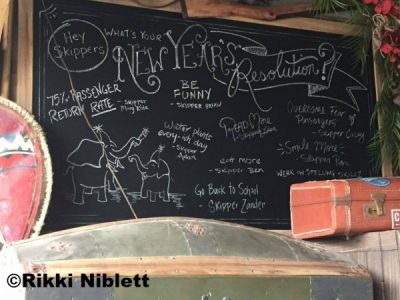 Hey
Skippers
WHAT'S YOUR
NEW YEAR'S
Resolution?
75% PASSENGER
RETURN RATE
- Skipper
BE
FUNNY
- SKIPPER
Water plants
every-ish day
- Skipper
Adam
READ MORE
- Skipper
eat more
- Skipper Ben
Go Back to School
- Skipper Zander
OVERCOME Fear of
Passengers
- Skipper
Smile More -
Skipper
WORK ON SPELLING SKILLZ
©Rikki Niblett